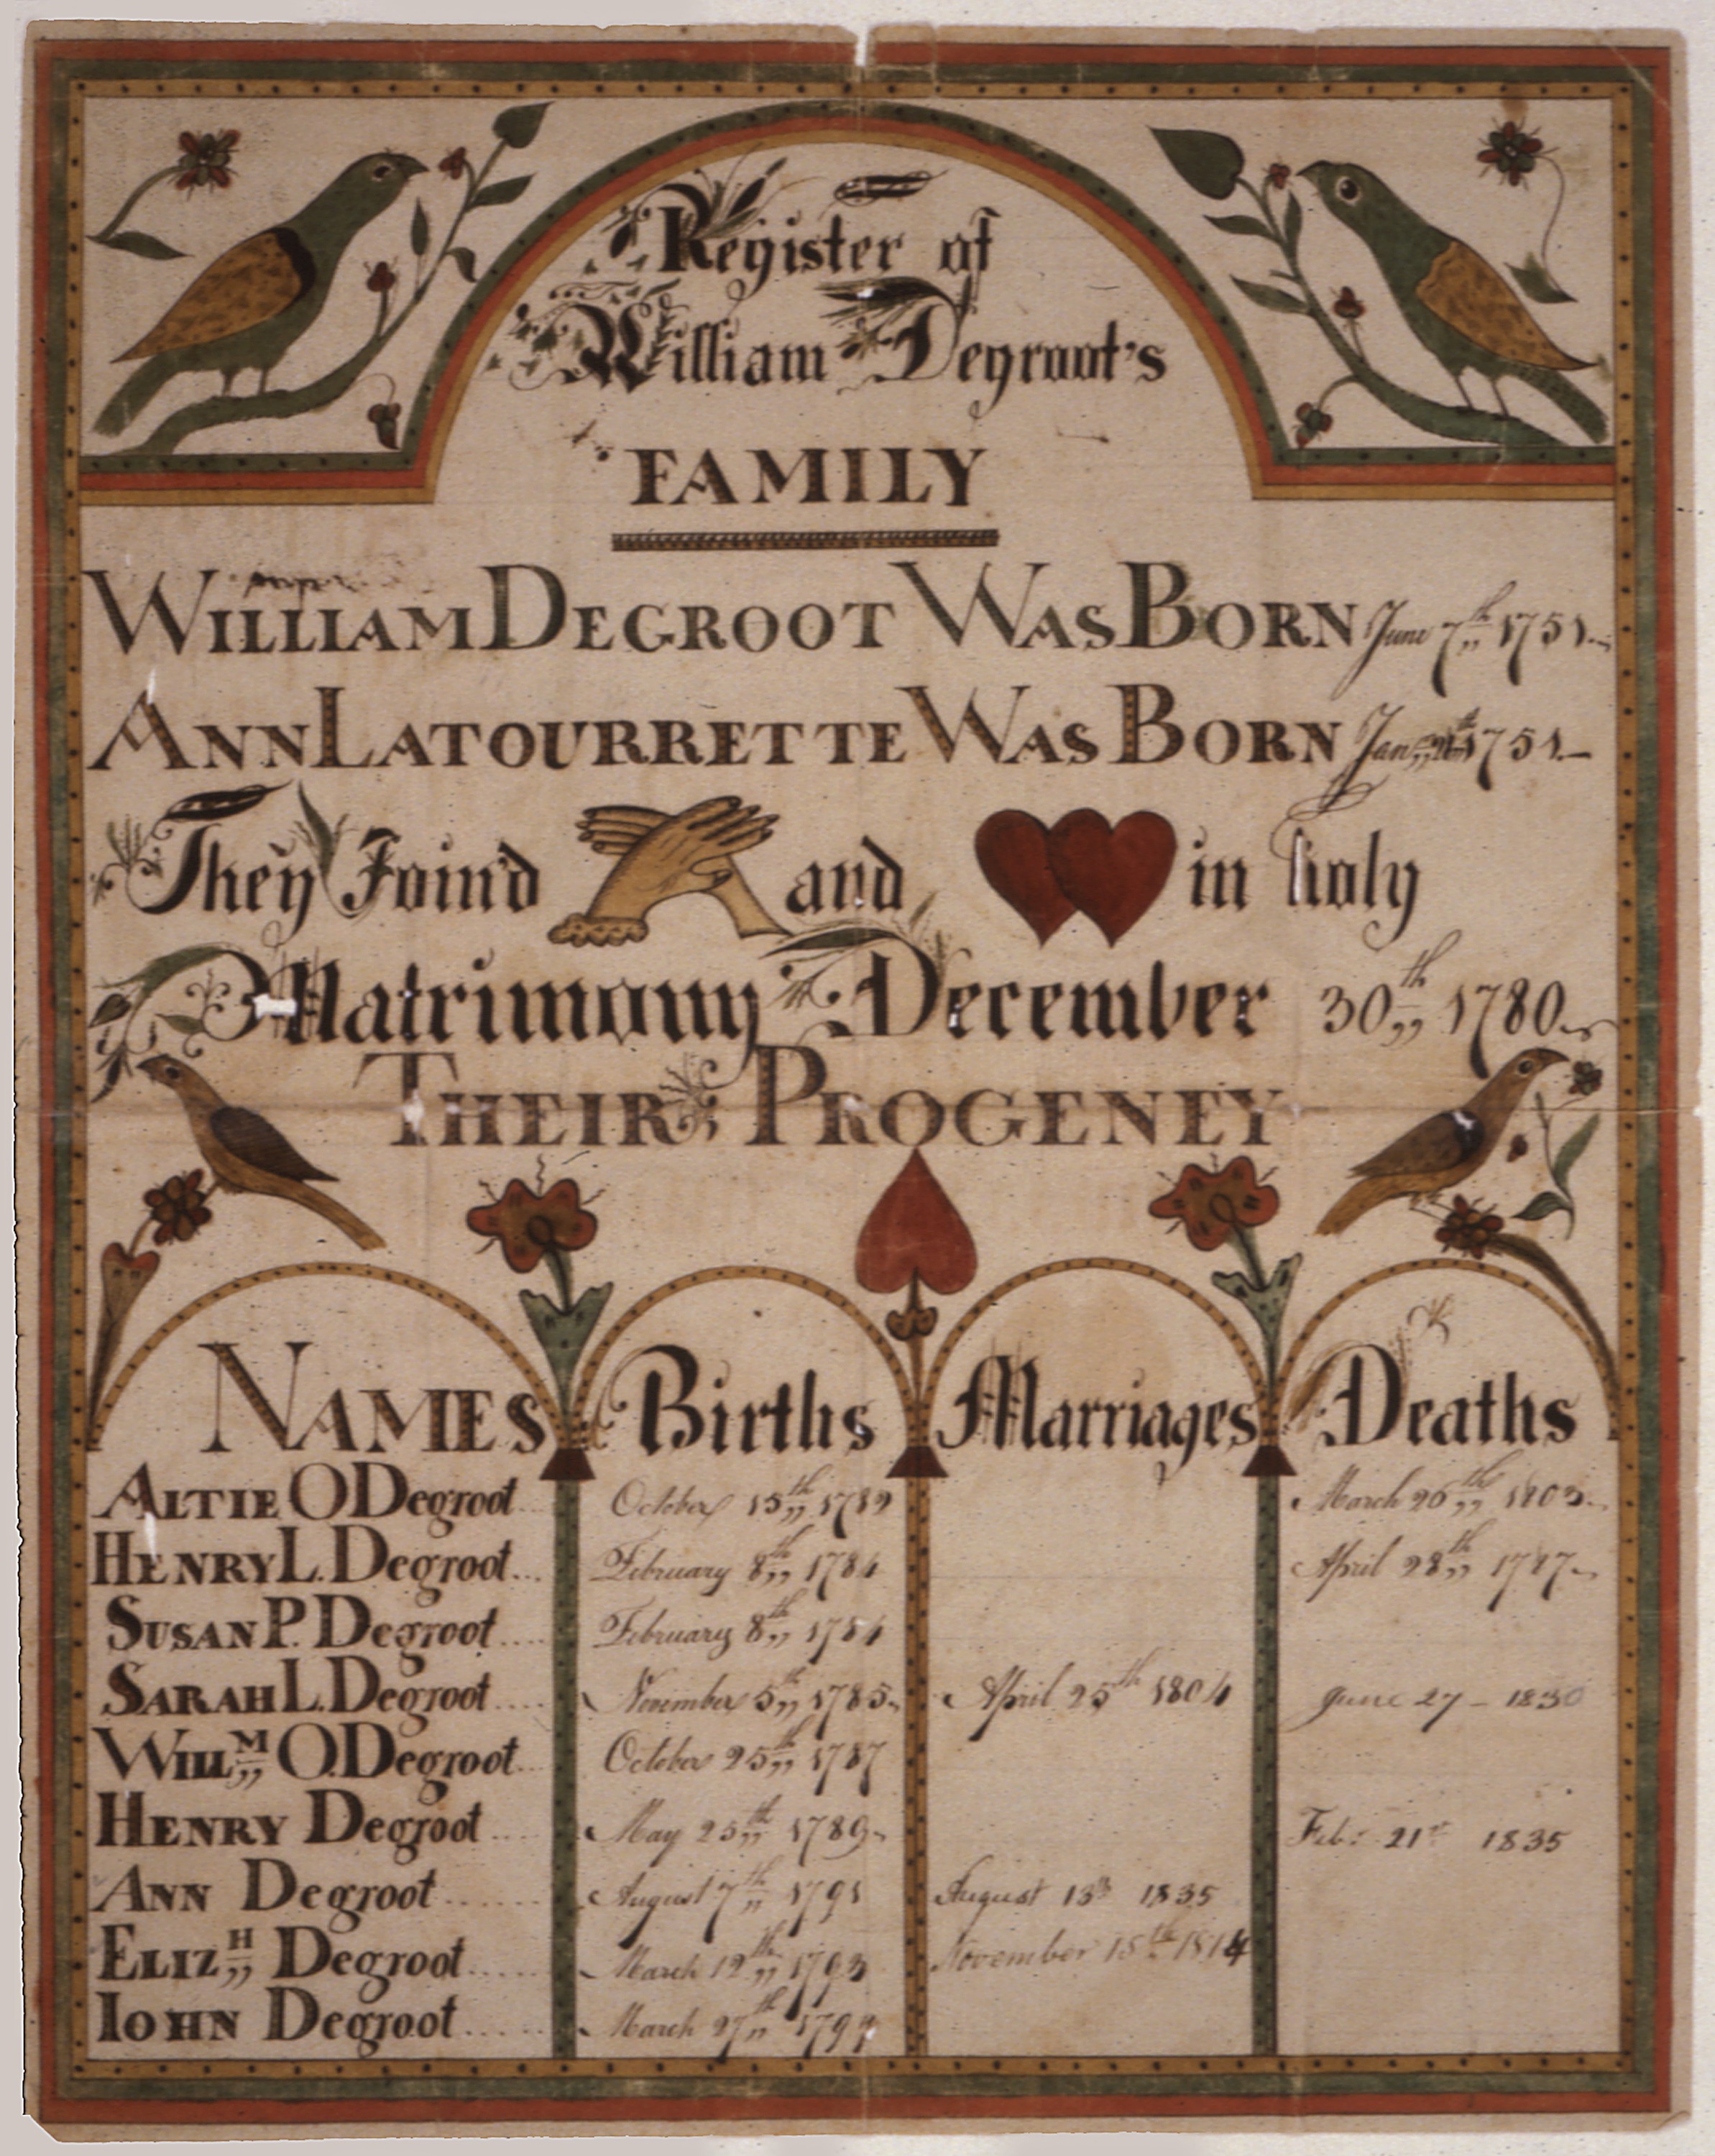 Register of
William Degroot's
FAMILY
WILLIAM DEGROOT WAS BORN June 7th 1751.
ANN LATOURRETTE WAS BORN Jan 1751.
They Join'd and in holy
Matrimony December 30th 1780.
THEIR PROGENEY
NAMES Births Marriages Deaths
ALTIE O Degroot October 15th 1782 March 26th 1803.
HENRY L. Degroot... February 8th 1784 April 28th 1787.
SUSAN P. Degroot.... February 8th 1784
SARAH L. Degroot.... November 5th 1785. April 25th 1804 June 27 - 1830
WILLM O. Degroot... October 25th 1787
HENRY Degroot.... May 25th 1789. Feb: 21st 1835
ANN Degroot....... August 7th 1791 August 13th 1835
ELIZH Degroot..... March 12th 1793 November 15th 1814
IOHN Degroot...... March 27th